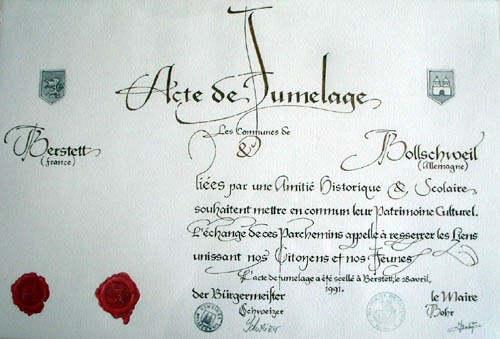 Acte de Jumelage
Les Communes de
Berstett & Bollschweil
(France) (Allemagne)
liées par une Amitié Historique & Scolaire
souhaitent mettre en commun leur Patrimoine Culturel.
L'échange de ces Parchemins appelle à resserrer les Liens
unissant nos Citoyens et nos Jeunes
L'acte de jumelage a été scellé à Berstett, le 28 avril,
1991.
der Bürgermeister le Maire
Schweizer Bohr